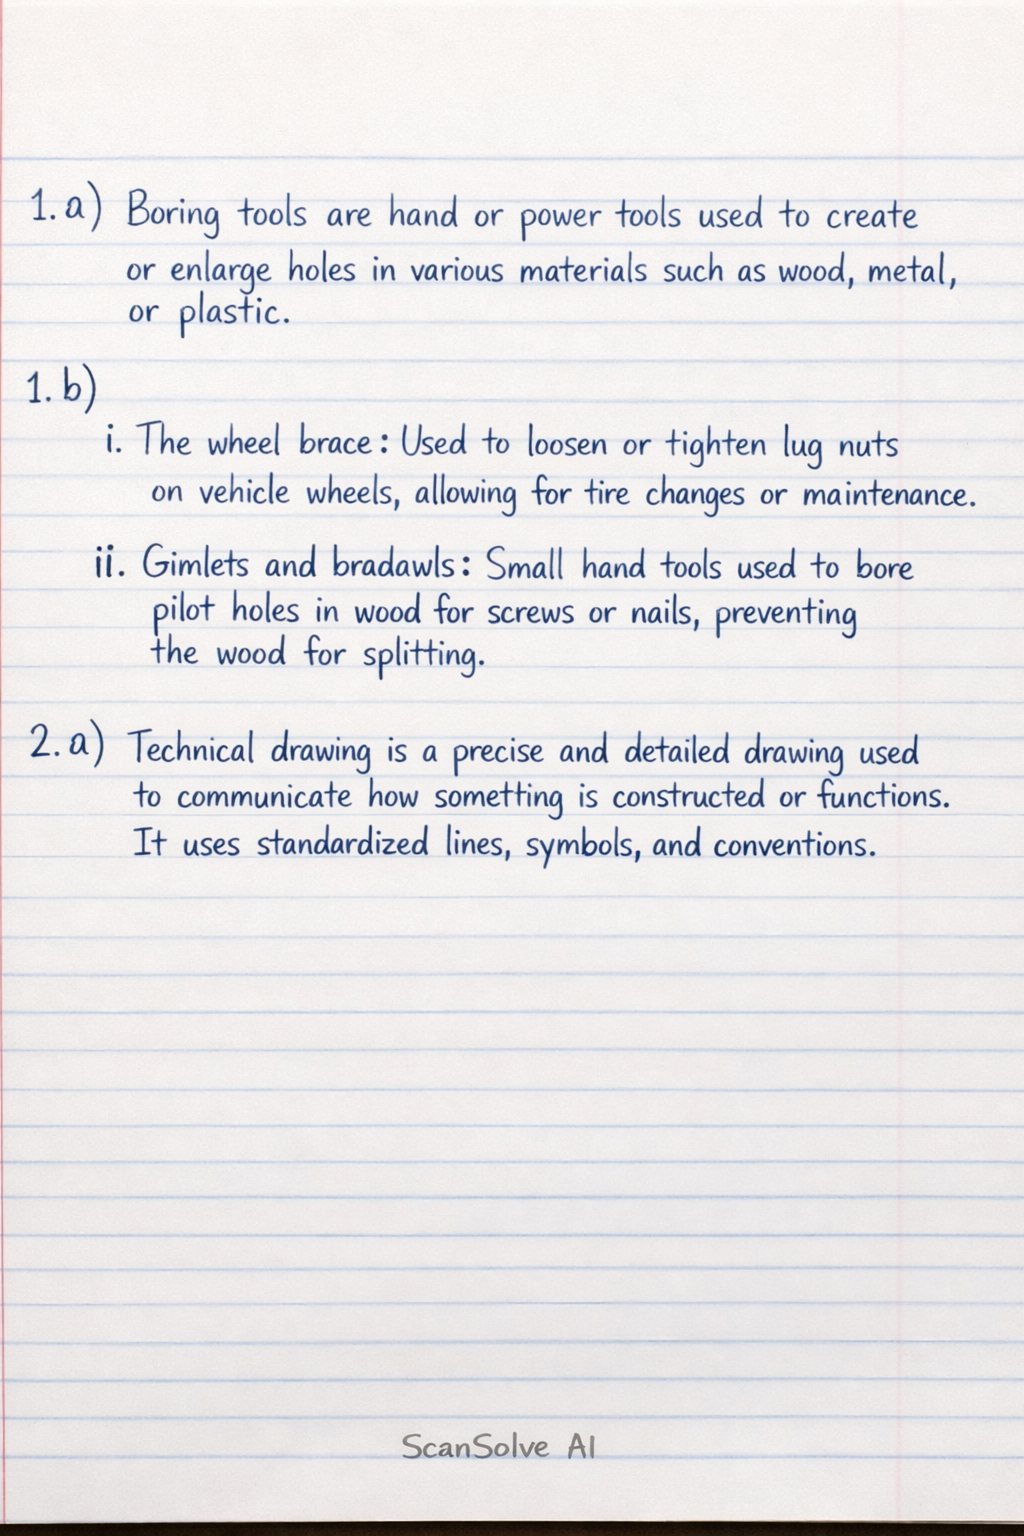 1. a) Boring tools are hand or power tools used to create
or enlarge holes in various materials such as wood, metal,
or plastic.
1. b)
i. The wheel brace: Used to loosen or tighten lug nuts
on vehicle wheels, allowing for tire changes or maintenance.
ii. Gimlets and bradawls: Small hand tools used to bore
pilot holes in wood for screws or nails, preventing
the wood for splitting.
2. a) Technical drawing is a precise and detailed drawing used
to communicate how sometting is constructed or functions.
It uses standardized lines, symbols, and conventions.
ScanSolve AI